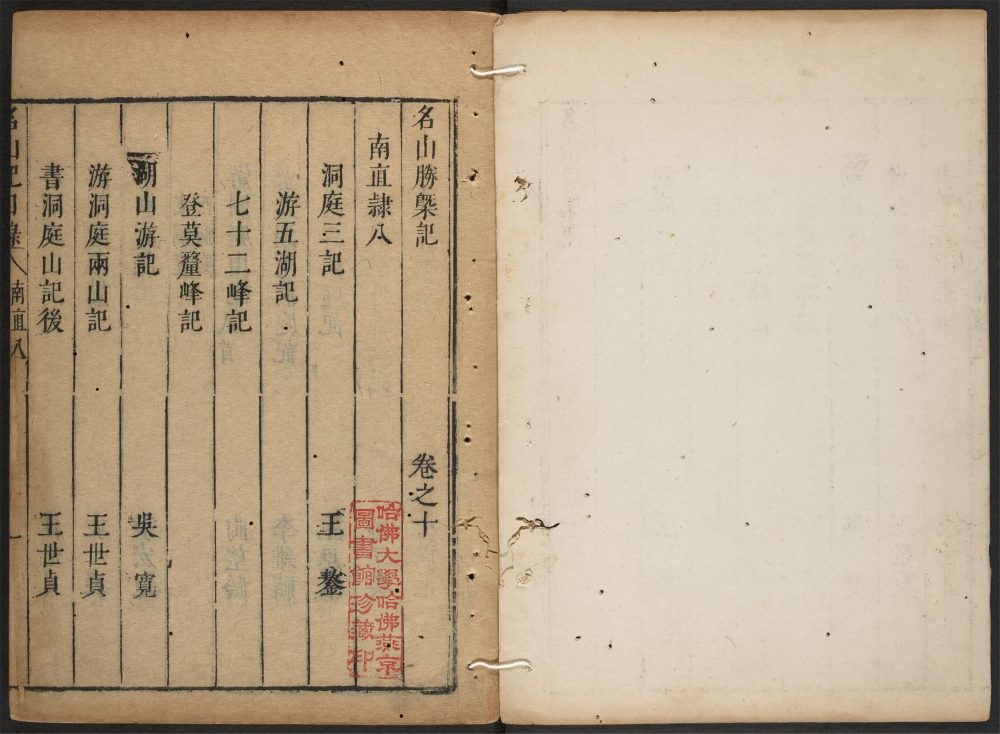 名山勝槩記 卷之十
南直隷八
洞庭三記 王鏊
游五湖記
七十二峰記
登莫釐峰記
湖山游記 吳寬
游洞庭兩山記 王世貞
書洞庭山記後 王世貞
名山記目錄 南直八 一
哈佛大學哈佛燕京
圖書館珍藏印